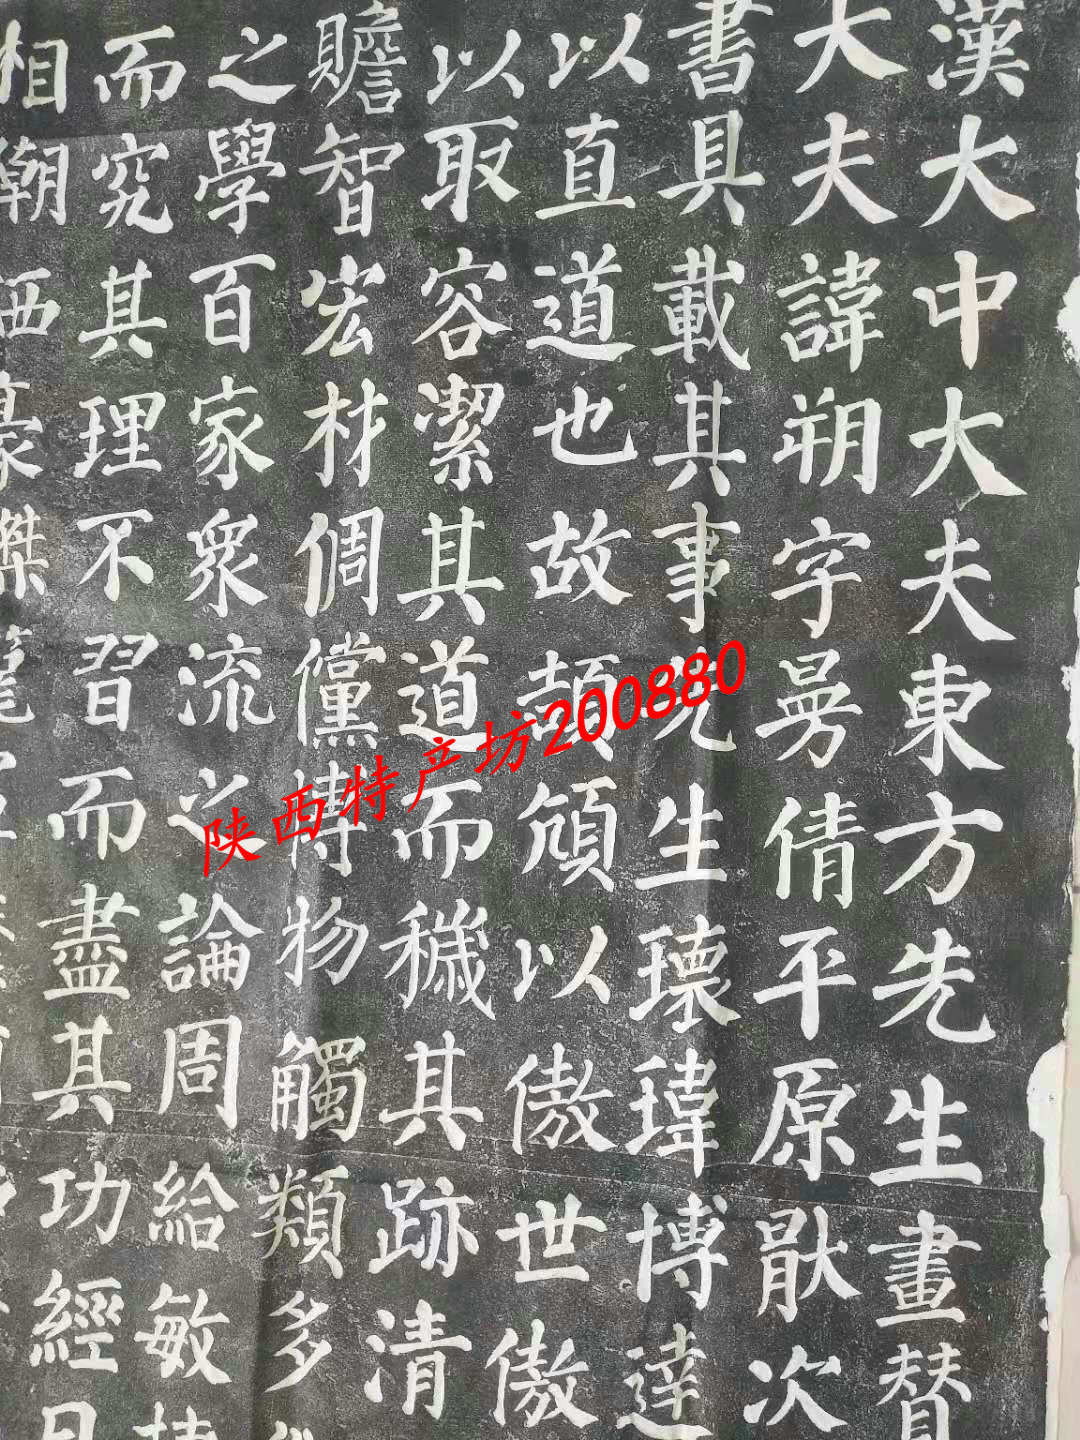 漢大中大夫東方先生畫賛
大夫諱朔字曼倩平原厭次
書具載其事先生瓌瑋博達
以直道也故頡頏以傲世傲
以取容潔其道而穢其跡清
贍智宏材倜儻博物觸類多
之學百家眾流之論周給敏
而究其理不習而盡其功經目
相嘲哂豪
陕西特产坊200880